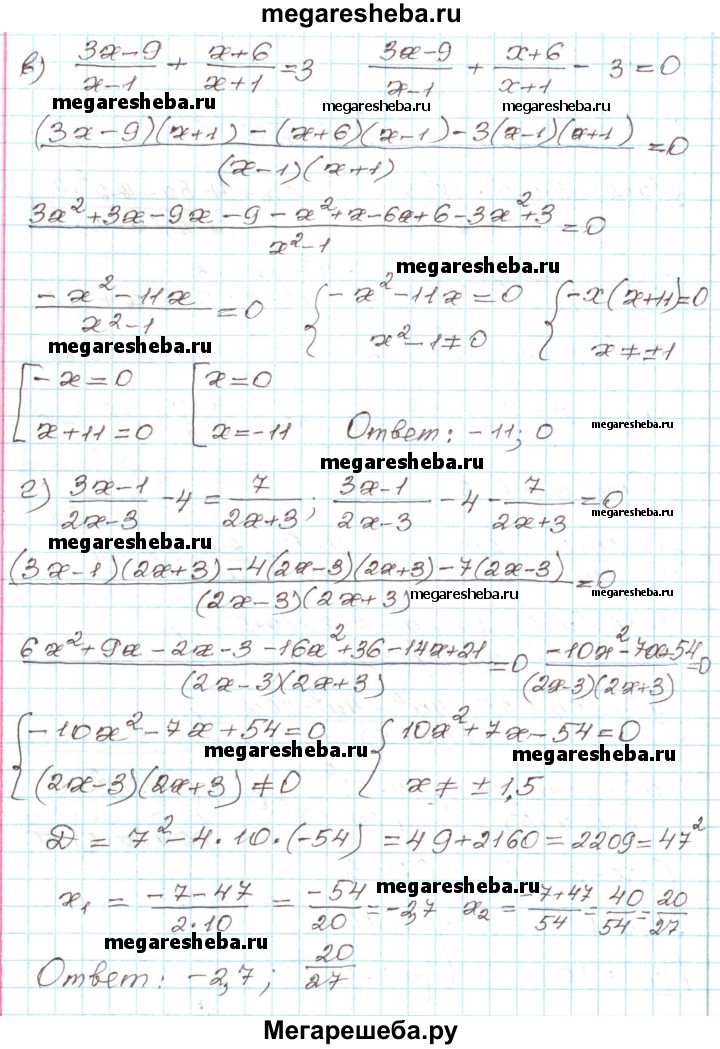 megaresheba.ru
в) (3x-9)/(x-1) + (x+6)/(x+1) = 3   (3x-9)/(x-1) + (x+6)/(x+1) - 3 = 0
megaresheba.ru megaresheba.ru megaresheba.ru
((3x-9)(x+1) - (x+6)(x-1) - 3(x-1)(x+1))/((x-1)(x+1)) = 0
(3x²+3x-9x-9-x²+x-6x+6-3x²+3)/(x²-1) = 0
megaresheba.ru
(-x²-11x)/(x²-1) = 0   { -x²-11x=0   { -x(x+11)=0
x²-1≠0   x≠±1
megaresheba.ru
[ -x=0   [ x=0
x+11=0   x=-11   Ответ: -11; 0
megaresheba.ru
megaresheba.ru
г) (3x-1)/(2x-3) - 4 = 7/(2x+3);   (3x-1)/(2x-3) - 4 - 7/(2x+3) = 0
megaresheba.ru
megaresheba.ru
((3x-1)(2x+3)-4(2x-3)(2x+3)-7(2x-3))/((2x-3)(2x+3)) = 0
megaresheba.ru megaresheba.ru
(6x²+9x-2x-3-16x²+36-14x+21)/((2x-3)(2x+3)) = 0   (-10x²-7x+54)/((2x-3)(2x+3)) = 0
{ -10x²-7x+54=0   { 10x²+7x-54=0
megaresheba.ru megaresheba.ru
(2x-3)(2x+3)≠0   x≠±1,5
D = 7²-4·10·(-54) = 49+2160 = 2209 = 47²
megaresheba.ru
x₁ = (-7-47)/(2·10) = -54/20 = -2,7   x₂ = (-7+47)/54 = 40/54 = 20/27
megaresheba.ru megaresheba.ru
Ответ: -2,7; 20/27
Мегарешеба.ру